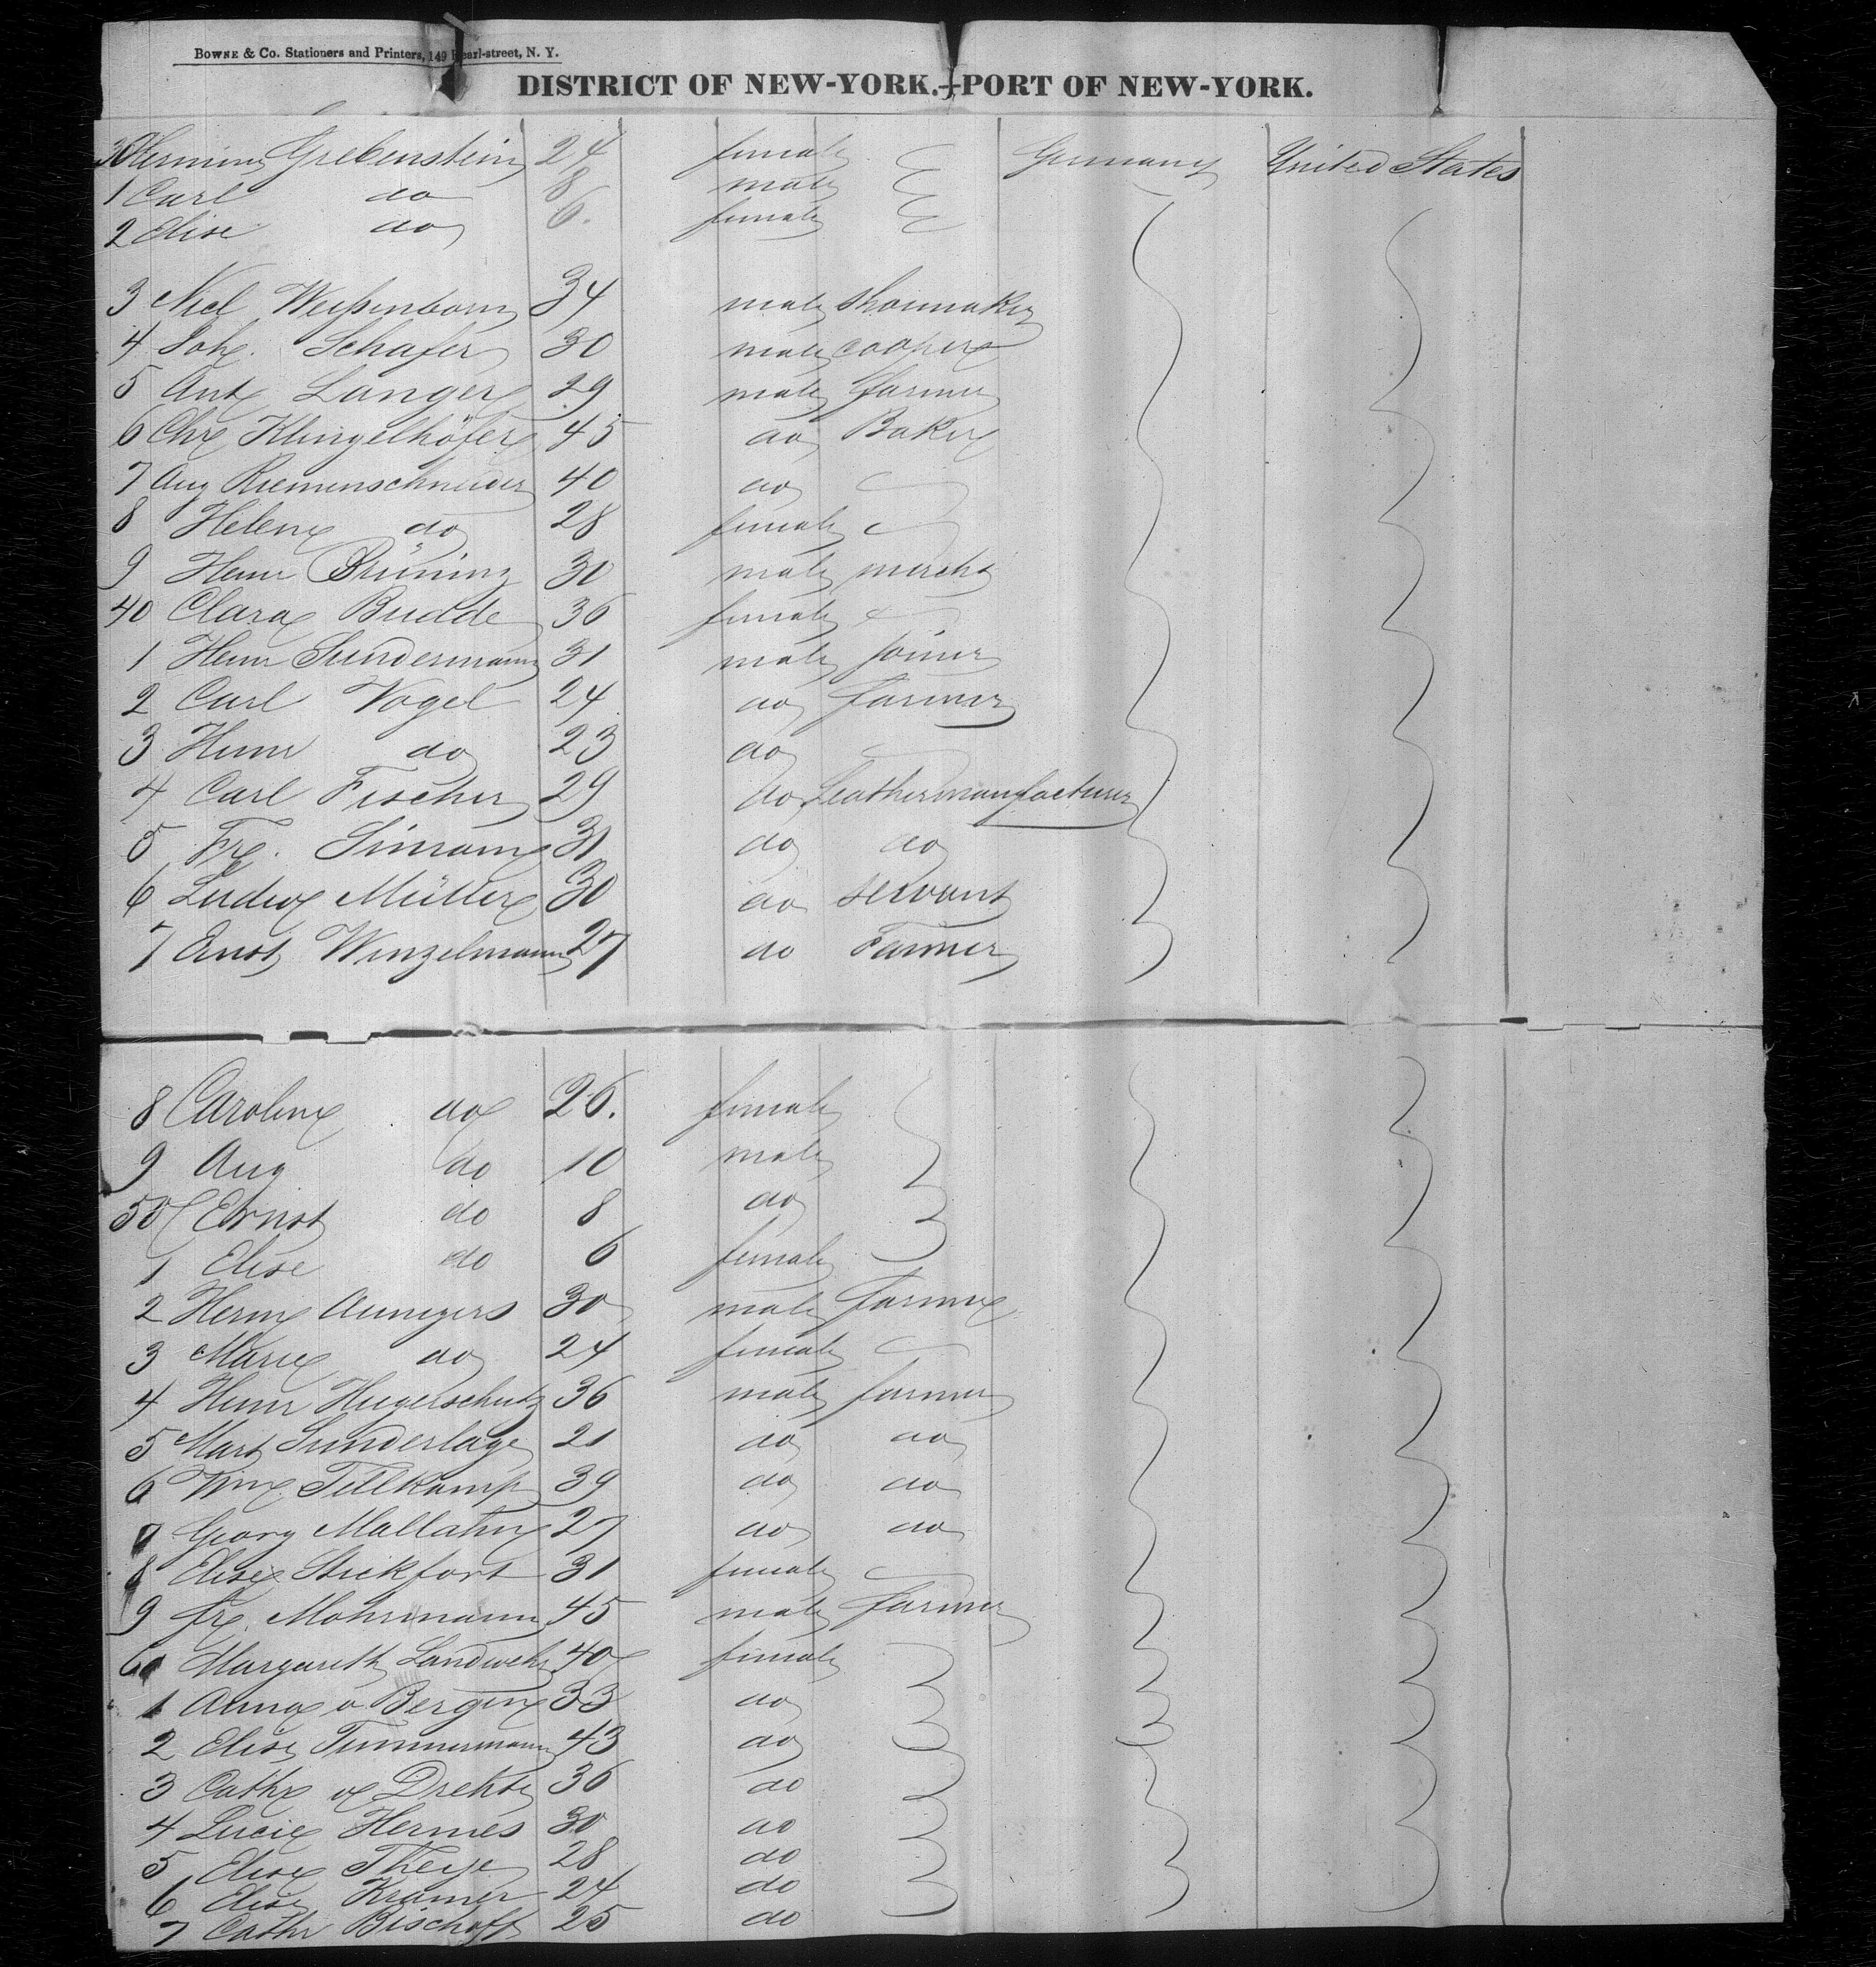 BOWNE & CO. Stationers and Printers, 149 Pearl-street, N. Y.
DISTRICT OF NEW-YORK.—PORT OF NEW-YORK.
30 Grebenstein 24 female Germany United States
1 Carl do 8 male
2 Elise do 6. female
3 Nicl Weißenborn 34 male Shoemaker
4 Joh. Schafer 30 male cooper
5 Ant Langer 29 male farmer
6 Chr Klingelhöfer 45 do Baker
7 Aug Riemenschneider 40 do
8 Helene do 28 female
9 Henr Brüning 30 male mercht
40 Clara Budde 36 female
1 Henr Sundermann 31 male joiner
2 Carl Vogel 24 do farmer
3 Henr do 23 do
4 Carl Fischer 29 do Leathermanufacturer
5 Fr. 31 do do
6 Ludw Müller 30 do servant
7 Ernst Winzelmann 27 do Farmer
8 Caroline do 26. female
9 Aug do 10 male
50 Ernst do 8 do
1 Elise do 6 female
2 Herm 30 male farmer
3 Marie do 24 female
4 Henr Hegelschutz 36 male farmer
5 Mart Sunderlage 21 do do
6 Wm Tellkamp 39 do do
7 Georg Mallahn 27 do do
8 Elise Strickfort 31 female
9 Fr. Mohrmann 45 male farmer
60 Margareth Landwehr 40 female
1 Anna v Bergen 33 do
2 Elise Timmermann 43 do
3 Cathr 36 do
4 Lucie Hermes 30 do
5 Elise Theye 28 do
6 Elise Kramer 24 do
7 Cathr Bischoff 25 do